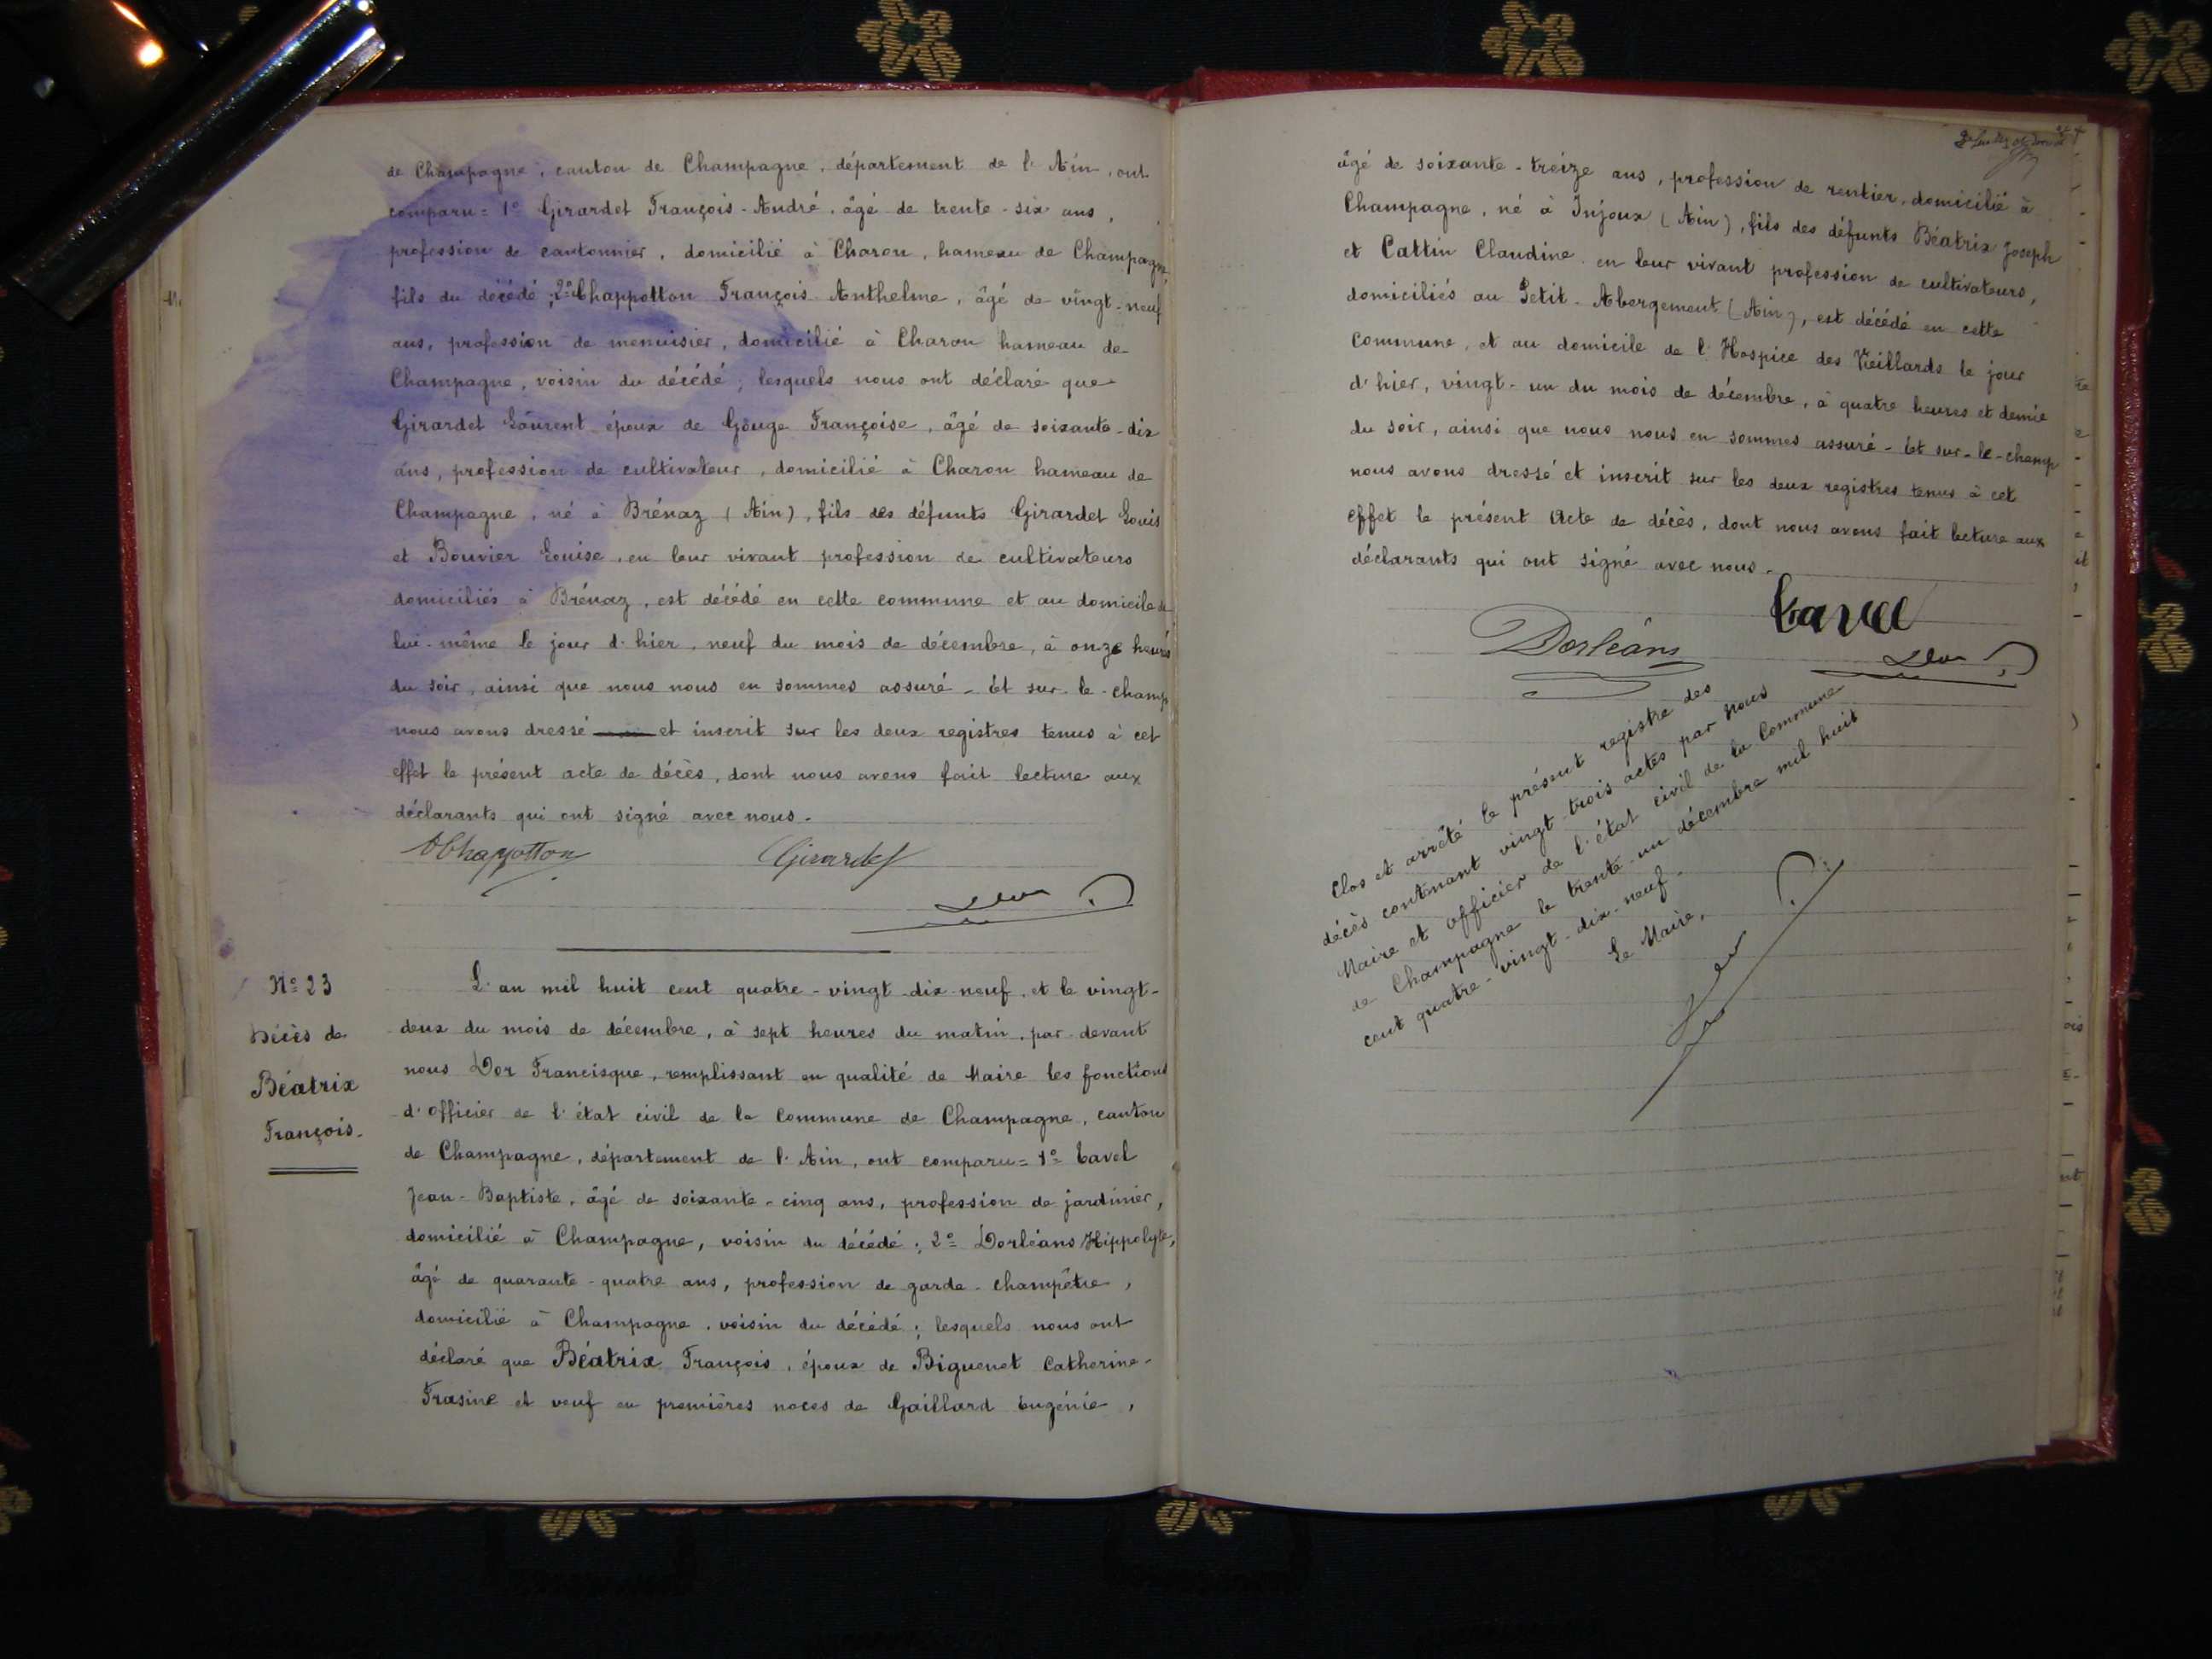 de Champagne, canton de Champagne, département de l'Ain, ont
comparu = 1º Girardet François-André, âgé de trente-six ans,
profession de cantonnier, domicilié à Charon, hameau de Champagne,
fils du décédé; 2º Chappotton François-Anthelme, âgé de vingt-neuf
ans, profession de menuisier, domicilié à Charon hameau de
Champagne, voisin du décédé; lesquels nous ont déclaré que
Girardet Laurent époux de Gouge Françoise, âgé de soixante-dix
ans, profession de cultivateur, domicilié à Charon hameau de
Champagne, né à Brénaz (Ain), fils des défunts Girardet Louis
et Bouvier Louise, en leur vivant profession de cultivateurs
domiciliés à Brénaz, est décédé en cette commune et au domicile de
lui-même le jour d'hier, neuf du mois de décembre, à onze heures
du soir, ainsi que nous nous en sommes assuré - Et sur-le-champ
nous avons dressé et inscrit sur les deux registres tenus à cet
effet le présent acte de décès, dont nous avons fait lecture aux
déclarants qui ont signé avec nous.
Chappotton Girardet
Dor
Nº 23
Décès de
Béatrix
François.
L'an mil huit cent quatre-vingt-dix-neuf, et le vingt-
deux du mois de décembre, à sept heures du matin, par devant
nous Dor Francisque, remplissant en qualité de Maire les fonctions
d'officier de l'état civil de la Commune de Champagne, canton
de Champagne, département de l'Ain, ont comparu = 1º Tavel
Jean-Baptiste, âgé de soixante-cinq ans, profession de jardinier,
domicilié à Champagne, voisin du décédé; 2º Dorléans Hippolyte,
âgé de quarante-quatre ans, profession de garde-champêtre,
domicilié à Champagne, voisin du décédé; lesquels nous ont
déclaré que Béatrix François, époux de Biguenet Catherine-
Frasine et veuf en premières noces de Gaillard Eugénie,
âgé de soixante-treize ans, profession de rentier, domicilié à
Champagne, né à Injoux (Ain), fils des défunts Béatrix Joseph
et Cattin Claudine en leur vivant profession de cultivateurs,
domiciliés au Petit-Abergement (Ain), est décédé en cette
Commune, et au domicile de l'Hospice des Vieillards le jour
d'hier, vingt-un du mois de décembre, à quatre heures et demie
du soir, ainsi que nous nous en sommes assuré - Et sur-le-champ
nous avons dressé et inscrit sur les deux registres tenus à cet
effet le présent Acte de décès, dont nous avons fait lecture aux
déclarants qui ont signé avec nous.
Tavel
Dorléans
Dor
Clos et arrêté le présent registre des
décès contenant vingt-trois actes par Nous
Maire et officier de l'état civil de la Commune
de Champagne le trente-un décembre mil huit
cent quatre-vingt-dix-neuf.
Le Maire,
Dor